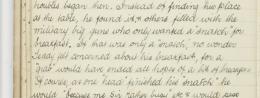 troubles began then. Instead of finding his place
at the table, he found it & others filled with the
military big guns who only wanted a "snatch" for
breakfast. If that was only a "snatch", no wonder
Teddy got concerned about his breakfast, for a
would have ended all hopes of a bit of breakfast
of course, as one "head" finished his "snatch" he
would "because me Sir rather busy" etc & would